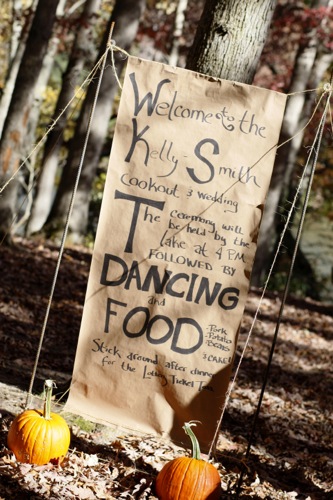 Welcome to the
Kelly - Smith
cookout & wedding
The Ceremony will
be held by the
lake at 4 PM
FOLLOWED BY
DANCING
and
FOOD
Pork
Potato
Beans
& CAKE!
Stick around after dinner
for the Ticket